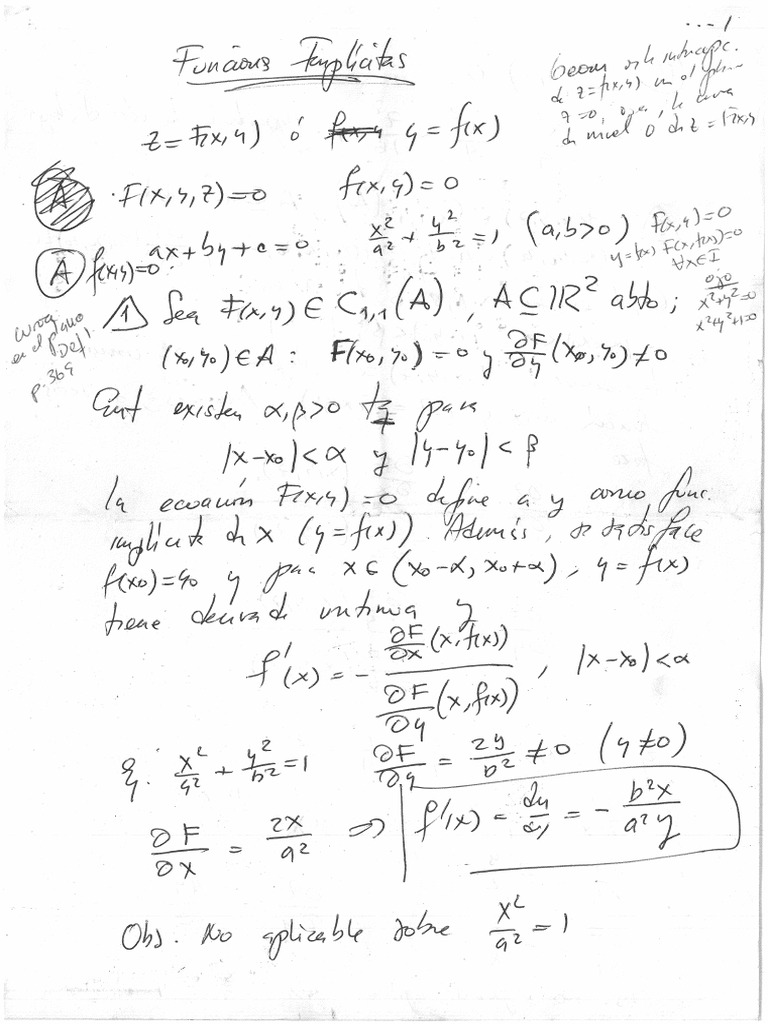 ... 1
Funciones Implícitas
Geom es la intersecc.
de z=f(x,y) con el plano
z=0, o sea, la curva
de nivel 0 de z=F(x,y)
z = F(x,y) ó f(x,y y = f(x)
A · F(x,y,z)=0 f(x,y)=0
A f(x,y)=0: ax+by+c=0 x²/a² + y²/b² = 1 (a,b>0)
F(x,y)=0
y=f(x) F(x,f(x))=0
∀x∈I
ojo
x²+y²=0
x²+y²+1=0
curva
en el plano
Def 1.
p. 369
1 Sea F(x,y) ∈ C₁,₁(A), A ⊆ ℝ² abto;
(x₀,y₀) ∈ A: F(x₀,y₀)=0 y ∂F/∂y (x₀,y₀) ≠ 0
Ent existen α,β>0 tq para
|x-x₀|<α y |y-y₀|<β
la ecuación F(x,y)=0 define a y como func.
implícita de x (y=f(x)). Además, se satisface
f(x₀)=y₀ y para x∈(x₀-α, x₀+α), y=f(x)
tiene derivada continua y
f'(x) = - ∂F/∂x (x,f(x)) / ∂F/∂y (x,f(x)), |x-x₀|<α
Ej. x²/a² + y²/b² = 1 ∂F/∂y = 2y/b² ≠ 0 (y≠0)
∂F/∂x = 2x/a² ⇒ f'(x) = dy/dx = - b²x/a²y
Obs. No aplicable sobre x²/a² = 1